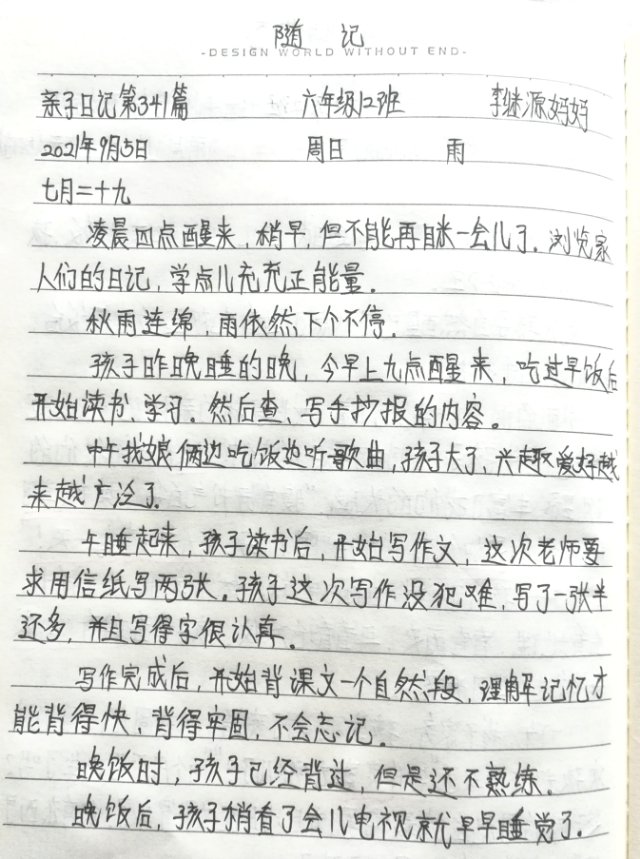 随记
-DESIGN WORLD WITHOUT END-
亲子日记第341篇 六年级12班 李继源妈妈
2021年9月5日 周日 雨
七月二十九
凌晨四点醒来，稍早，但不能再眯一会儿了。浏览家
人们的日记，学点儿充充正能量。
秋雨连绵，雨依然下个不停。
孩子昨晚睡的晚，今早上九点醒来，吃过早饭后
开始读书、学习。然后查、写手抄报的内容。
中午我娘俩边吃饭边听歌曲，孩子大了、兴趣爱好越
来越广泛了。
午睡起来，孩子读书后，开始写作文，这次老师要
求用信纸写两张。孩子这次写作没犯难，写了一张半
还多，并且写得字很认真。
写作完成后，开始背课文一个自然段，理解记忆才
能背得快、背得牢固，不会忘记。
晚饭时，孩子已经背过，但是还不熟练。
晚饭后，孩子稍看了会儿电视就早早睡觉了。